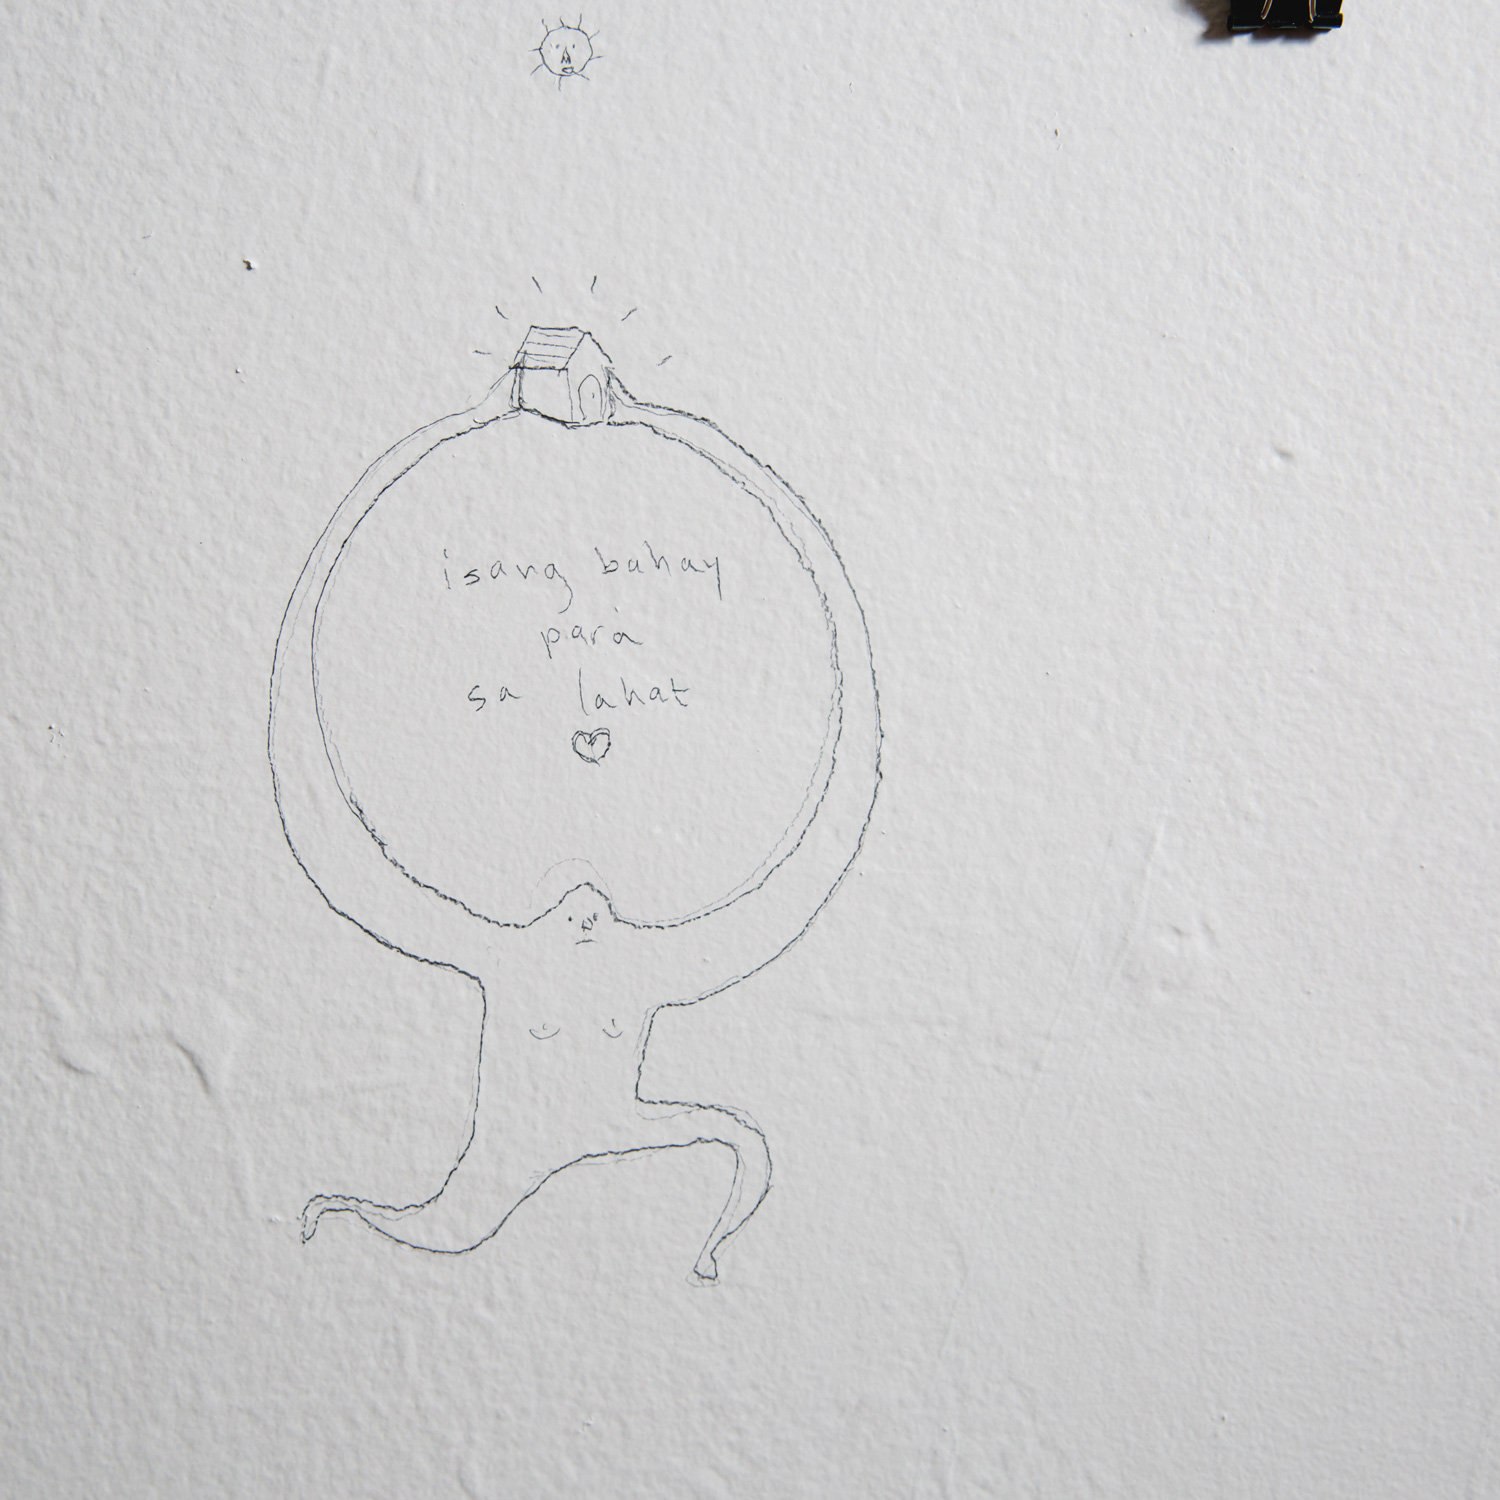 isang bahay
para
sa lahat